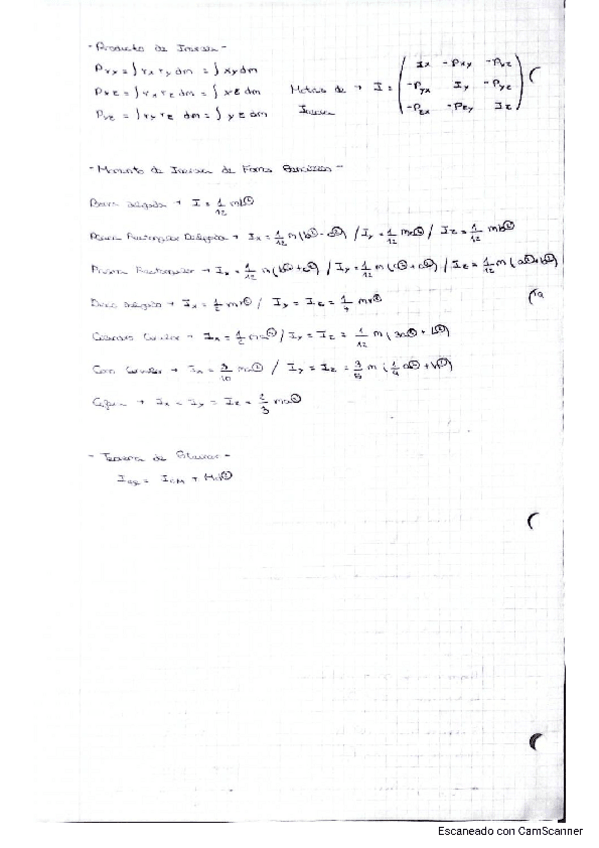 - Producto de Inercia -
Pxy = ∫ rx ry dm = ∫ xy dm
Pxz = ∫ rx rz dm = ∫ xz dm
Pyz = ∫ ry rz dm = ∫ yz dm
Matriz de Inercia → I = ( Ix -Pxy -Pxz
-Pyx Iy -Pyz
-Pzx -Pzy Iz )
- Momento de Inercia de Formas -
Barra delgada → I = 1/12 ml²
Rectangular Delgada → Ix = 1/12 m(b² + c²) / Iy = 1/12 mc² / Iz = 1/12 mb²
Prisma Rectangular → Ix = 1/12 m(b² + c²) / Iy = 1/12 m(c² + a²) / Iz = 1/12 m(a² + b²)
Disco delgado → Ix = 1/2 mr² / Iy = Iz = 1/4 mr²
Cilindro Circular → Ix = 1/2 ma² / Iy = Iz = 1/12 m(3a² + L²)
Cono Circular → Ix = 3/10 ma² / Iy = Iz = 3/5 m(1/4 a² + h²)
→ Ix = Iy = Iz = ma²
- Teorema de Steiner -
= ICM + Md²
Escaneado con CamScanner